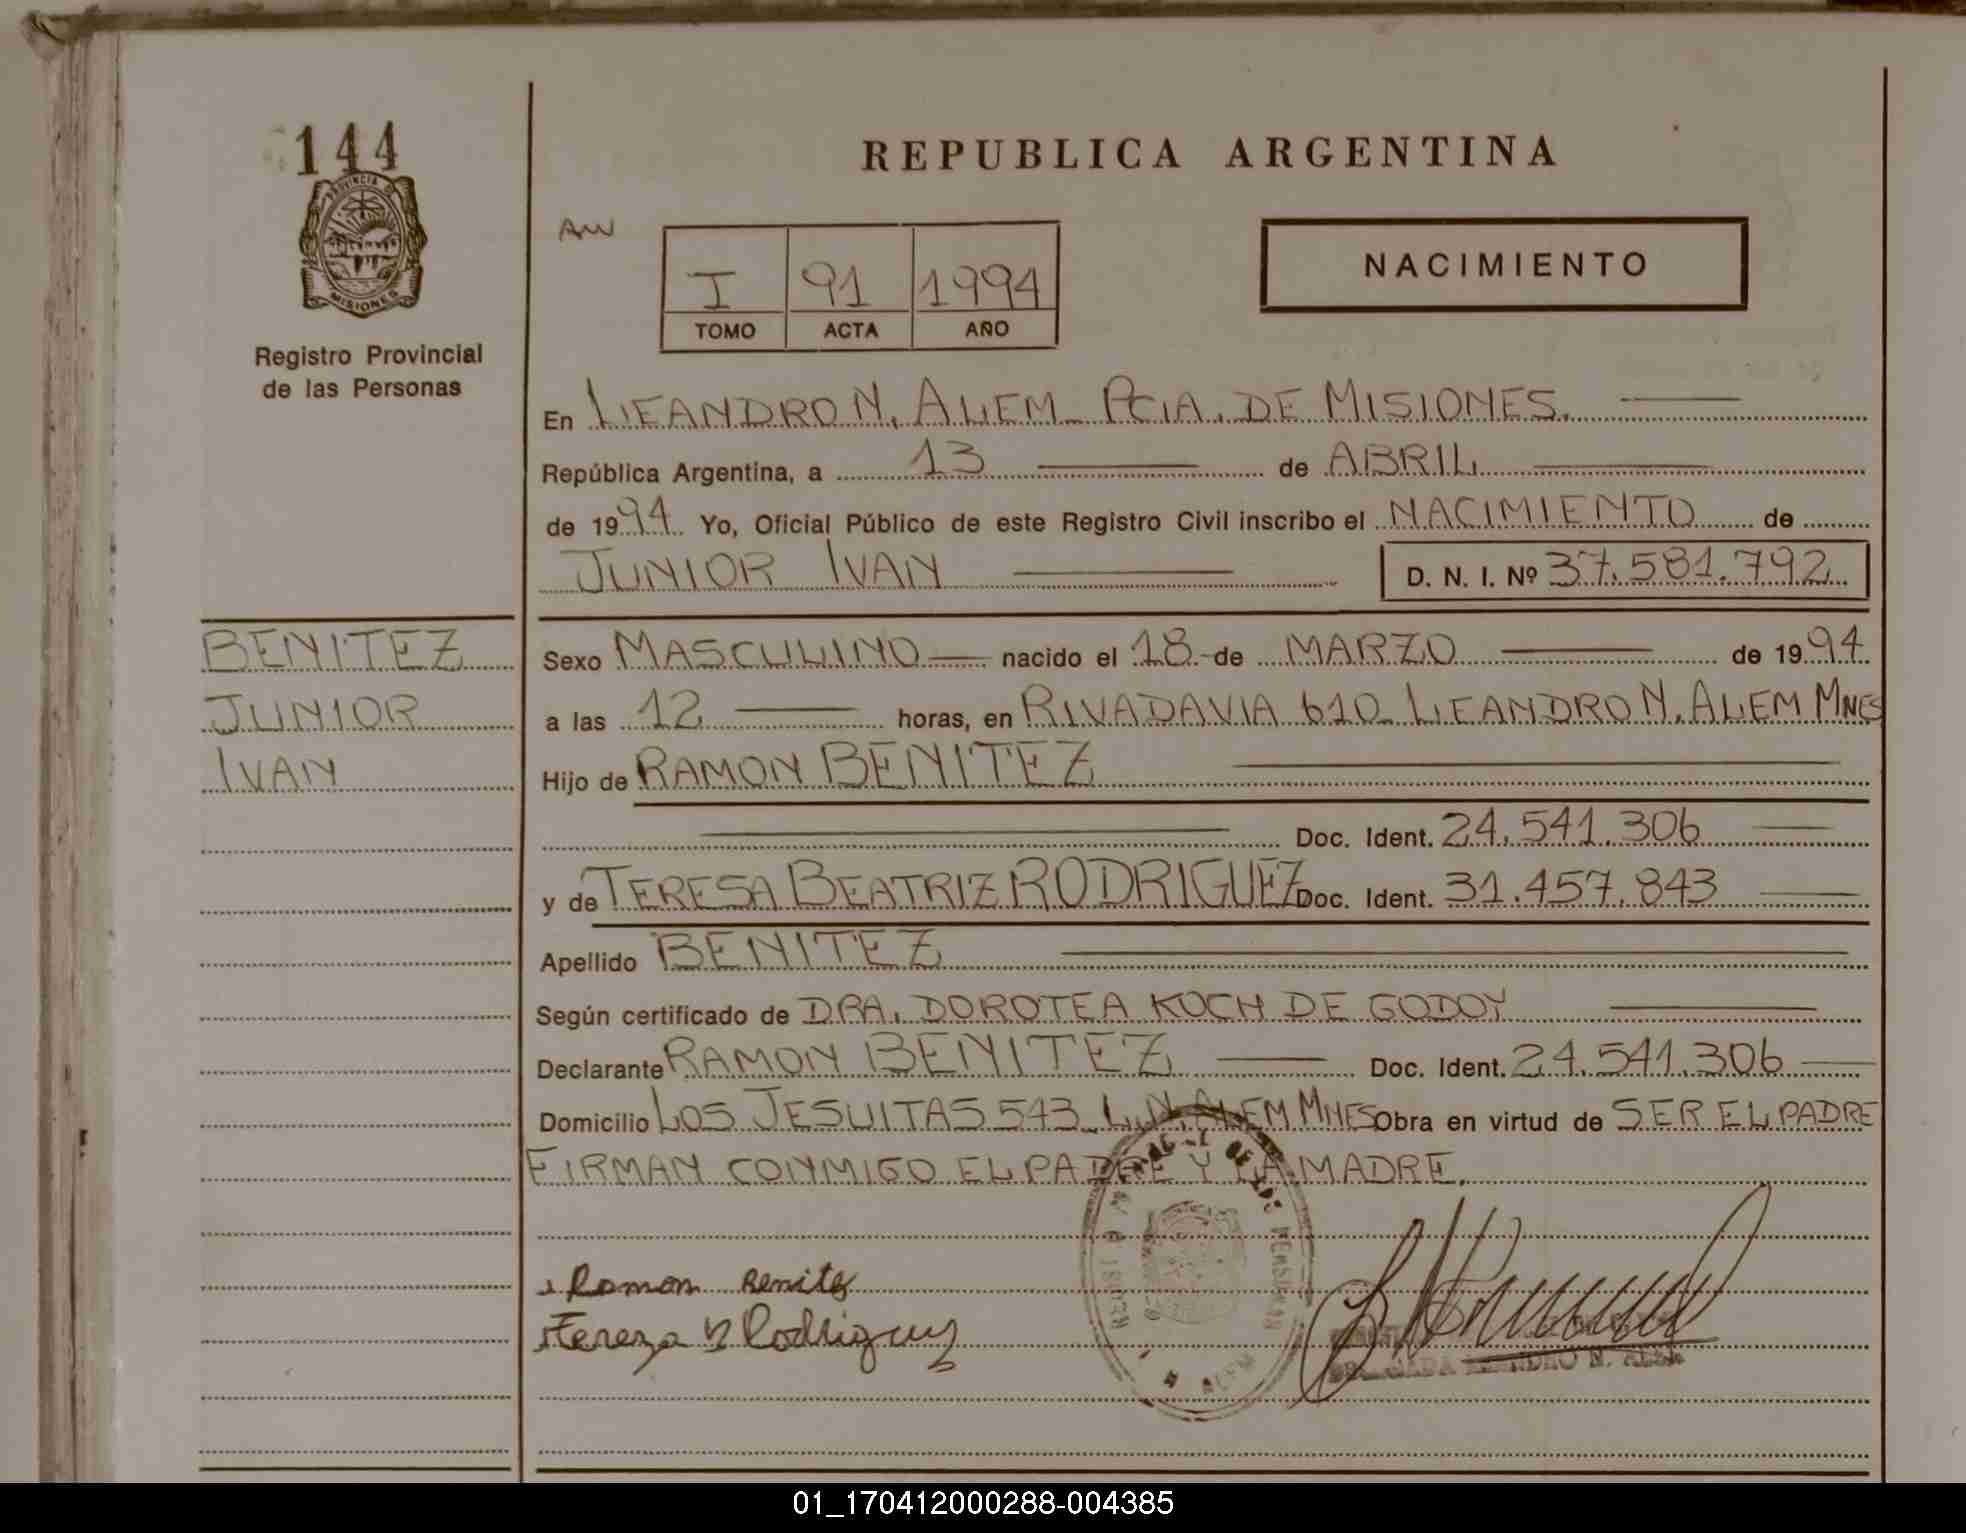 144
PROVINCIA DE
MISIONES
Registro Provincial
de las Personas
REPUBLICA ARGENTINA
I 91 1994
TOMO ACTA AÑO
NACIMIENTO
En LEANDRO N. ALEM - PCIA. DE MISIONES.
República Argentina, a 13 de ABRIL
de 1994 Yo, Oficial Público de este Registro Civil inscribo el NACIMIENTO de
JUNIOR IVAN D. N. I. Nº 37.581.792
BENITEZ
JUNIOR
IVAN
Sexo MASCULINO nacido el 18 de MARZO de 1994
a las 12 horas, en RIVADAVIA 610 - LEANDRO N. ALEM MNES
Hijo de RAMON BENITEZ
Doc. Ident. 24.541.306
y de TERESA BEATRIZ RODRIGUEZ Doc. Ident. 31.457.843
Apellido BENITEZ
Según certificado de DRA. DOROTEA KOCH DE GODOY
Declarante RAMON BENITEZ Doc. Ident. 24.541.306
Domicilio LOS JESUITAS 543 - L.N. ALEM MNES Obra en virtud de SER EL PADRE
FIRMAN CONMIGO EL PADRE Y LA MADRE.
Ramon Benitez
Tereza B Rodriguez
01_170412000288-004385